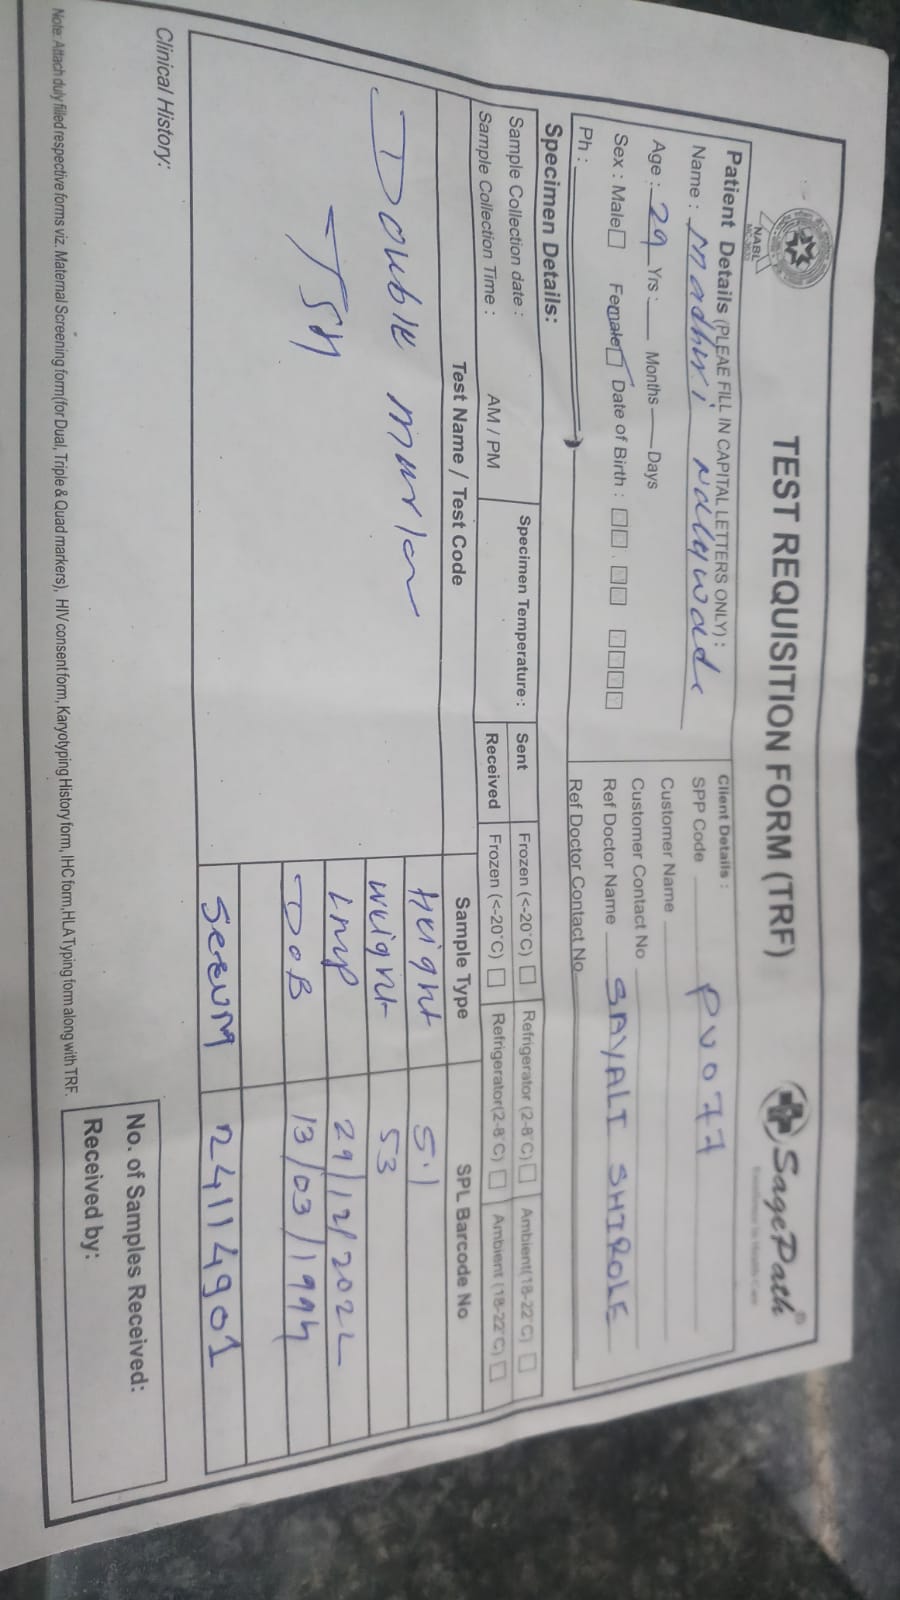 TEST REQUISITION FORM (TRF)
SagePath®
NABL
Patient Details (PLEAE FILL IN CAPITAL LETTERS ONLY) :
Name : Madhuri
Age : 29 Yrs : Months Days
Sex : Male Female Date of Birth :
Ph :
Client Details :
SPP Code PV077
Customer Name
Customer Contact No
Ref Doctor Name SAYALI SHIROLE
Ref Doctor Contact No
Specimen Details:
Sample Collection date :
Sample Collection Time : AM / PM
Specimen Temperature : Sent Frozen (<-20°C) Refrigerator (2-8°C) Ambient(18-22°C)
Received Frozen (<-20°C) Refrigerator(2-8°C) Ambient (18-22°C)
Test Name / Test Code Sample Type SPL Barcode No
Double Marker
TSH
Height 5.1
Weight 53
LMP 29/12/2022
DOB 13/03/1994
Serum 24114901
Clinical History:
No. of Samples Received:
Received by:
Note: Attach duly filled respective forms viz. Maternal Screening form(for Dual, Triple & Quad markers), HIV consent form, Karyotyping History form, IHC form,HLA Typing form along with TRF.